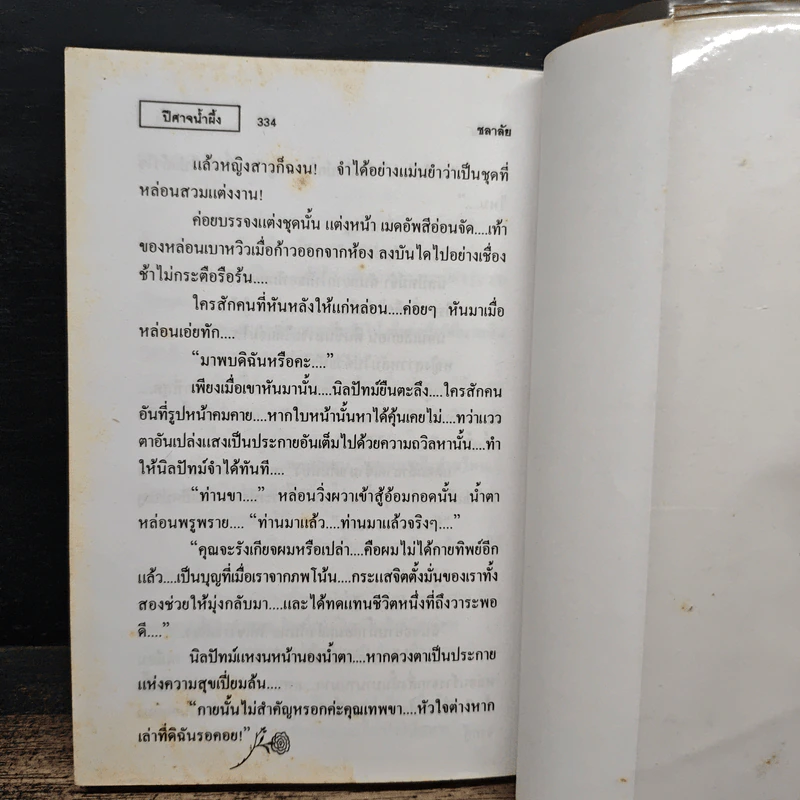 ปีศาจน้ำผึ้ง 334 ชลาลัย
แล้วหญิงสาวก็ฉงน! จำได้อย่างแม่นยำว่าเป็นชุดที่
หล่อนสวมแต่งงาน!
ค่อยบรรจงแต่งชุดนั้น แต่งหน้า เมดอัพสีอ่อนจัด....เท้า
ของหล่อนเบาหวิวเมื่อก้าวออกจากห้อง ลงบันไดไปอย่างเชื่อง
ช้าไม่กระตือรือร้น....
ใครสักคนที่หันหลังให้แก่หล่อน....ค่อยๆ หันมาเมื่อ
หล่อนเอ่ยทัก....
“มาพบดิฉันหรือคะ....”
เพียงเมื่อเขาหันมานั้น....นิลปัทม์ยืนตะลึง....ใครสักคน
อันที่รูปหน้าคมคาย....หากใบหน้านั้นหาได้คุ้นเคยไม่....ทว่าแวว
ตาอันเปล่งแสงเป็นประกายอันเต็มไปด้วยความถวิลหานั้น....ทำ
ให้นิลปัทม์จำได้ทันที....
“ท่านขา....” หล่อนวิ่งผวาเข้าสู้อ้อมกอดนั้น น้ำตา
หล่อนพรูพราย.... “ท่านมาแล้ว....ท่านมาแล้วจริงๆ....”
“คุณจะรังเกียจผมหรือเปล่า....คือผมไม่ได้กายทิพย์อีก
แล้ว....เป็นบุญที่เมื่อเราจากภพโน้น....กระแสจิตตั้งมั่นของเราทั้ง
สองช่วยให้มุ่งกลับมา....และได้ทดแทนชีวิตหนึ่งที่ถึงวาระพอ
ดี....”
นิลปัทม์แหงนหน้านองน้ำตา....หากดวงตาเป็นประกาย
แห่งความสุขเปี่ยมล้น....
“กายนั้นไม่สำคัญหรอกค่ะคุณเทพขา....หัวใจต่างหาก
เล่าที่ดิฉันรอคอย!”